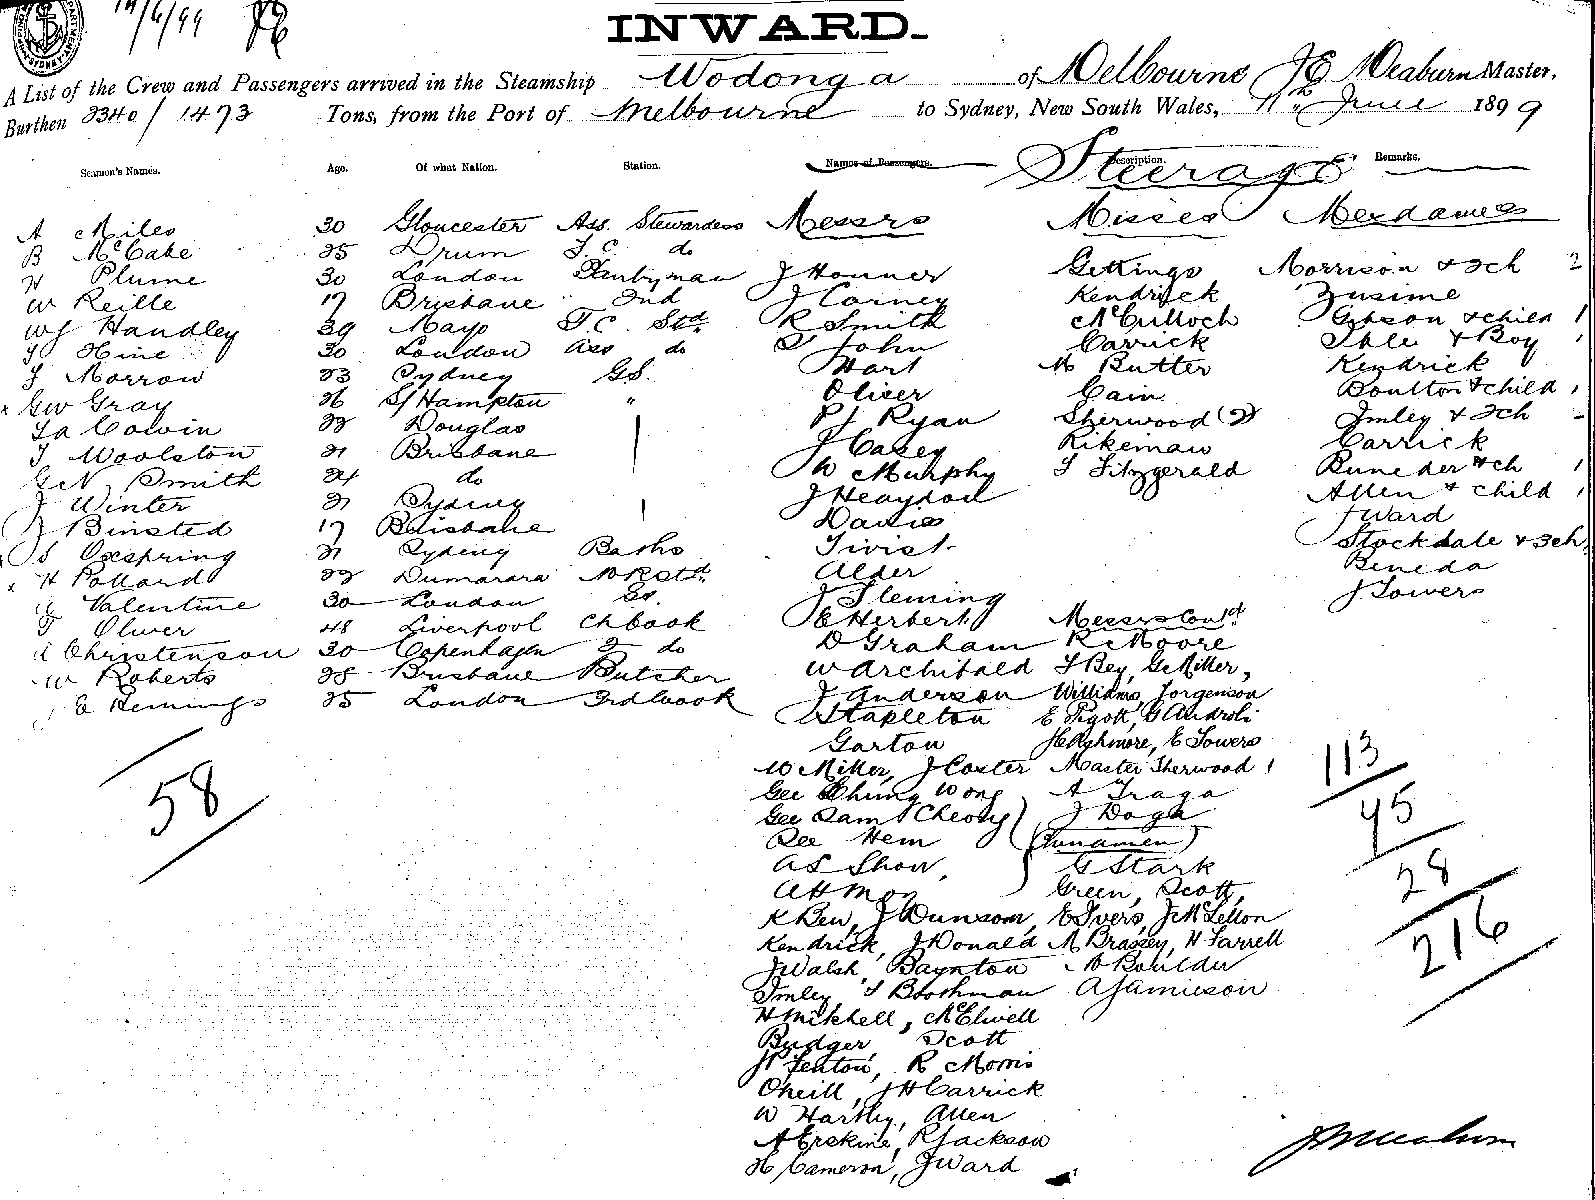 14/6/99
INWARD.
A List of the Crew and Passengers arrived in the Steamship Wodonga of Melbourne J E Meaburn Master,
Burthen 2340 / 1473 Tons, from the Port of Melbourne to Sydney, New South Wales, 11th June 1899
Seamen's Names. Age. Of what Nation. Station. Names of Passengers. Description. Remarks.
Steerage
A Miles 30 Gloucester Ass. Stewardess
B McCabe 25 Drum do
H Plume 30 London Pantryman
W Reille 17 Brisbane 2nd
WJ Handley 29 Mayo F.C. Std
Hine 30 London Ass do
Morrow 23 Sydney G.S.
x GW Gray 26 S/Hampton "
Cowin 22 Douglas
Woolston 21 Brisbane
Smith 24 do
J Winter 21 Sydney
J Binsted 17 Brisbane
S Oxspring 21 Sydney Baths
x H Pollard 22 Dumarara
Valentine 30 London GS.
Oliver 48 Liverpool Ch Cook
A Christenson 30 Copenhagen 2 do
W Roberts 28 Brisbane Butcher
E Hemings 25 London 3rd Cook
58
Messrs
J Honner
J Carney
R Smith
John
Hart
Oliser
PJ Ryan
J Casey
W Murphy
J Heaydon
Davis
Twist
Alder
J Fleming
E Herbert
D Graham
W Archibald
J Anderson
Stapleton
Garton
W Miller, J Coster
Gee Chung Wong
Gee Sam Cheong
See Hem
Ah Show,
Ah Mon
K Ben, J Dunsom,
Kendrick, J Donald
J Walsh, Baynton
Imley, Boothman
H Mikhell, McElwell
Budger, Scott
Fenton, R Morris
Oneill, JH Carrick
W Hartley, Allen
A Erskine, R Jackson
H Cameron, J Ward
Misses
Gettings
Kendrick
McCulloch
Carrick
M Butter
Cain
Sherwood (2)
Rikeman
Fitzgerald
Messrs Cont'd
R Moore
Bey, G Miller,
Williams, Jorgenson
E Pigott, G Androli
H Aghmore, E Towers
Master Sherwood 1
A Traga
J Doga
(Chinamen)
G Stark
Green, Scott,
E Ivers, J McLellon
M Brassey, H Farrell
W Boulder
A Jamieson
Mesdames
Morrison & 2ch 2
Zusime
Gibson & child 1
& Boy 1
Kendrick
Boulton & child 1
Imley & 2ch
Carrick
& ch 1
Allen & child 1
J Ward
Stockdale & 3ch
Beneda
J Towers
113
45
28
216